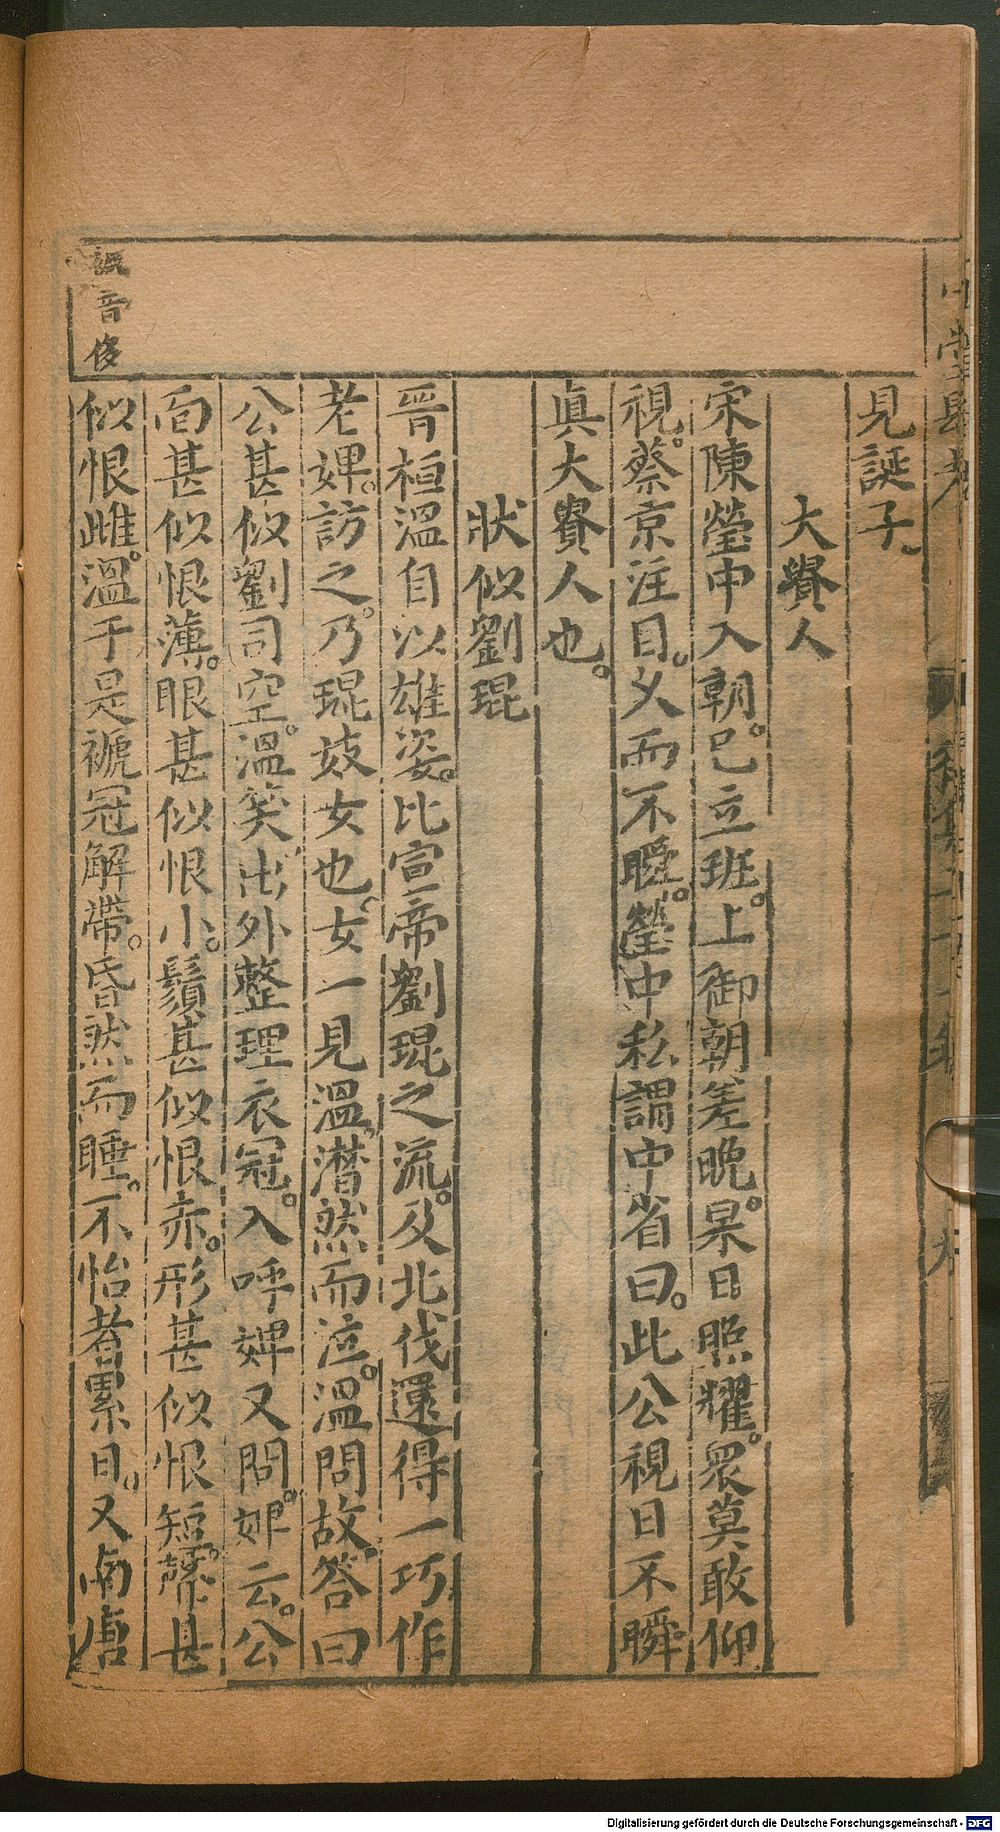 見誕子
大貴人
宋陳瑩中入朝。已立班。上御朝差晩。杲日照耀。衆莫敢仰
視。蔡京注目。久而不瞬。瑩中私謂中省曰。此公視日不瞬
真大貴人也。
狀似劉琨
晉桓溫自以雄姿。比宣帝劉琨之流。及北伐還得一巧作
老婢。訪之。乃琨妓女也。女一見溫。潸然而泣。溫問故。答曰
公甚似劉司空。溫笑出外整理衣冠。入呼婢又問。婢云。公
面甚似恨薄。眼甚似恨小。鬚甚似恨赤。形甚似恨短。聲甚
似恨雌。溫于是褫冠解帶。昏然而睡。不怡者累日。又南唐
音侈
Digitalisierung gefördert durch die Deutsche Forschungsgemeinschaft - DFG